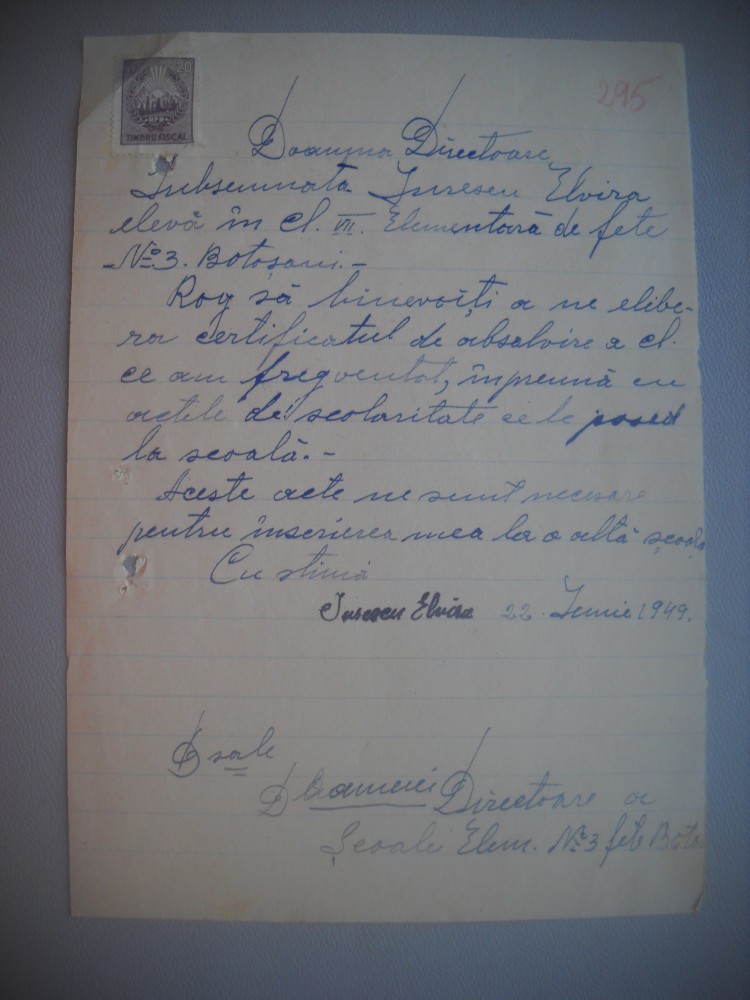 20
RPR
TIMBRU FISCAL
295
Doamna Directoare
Subsemnata Jurescu Elvira
elevă în cl. VII. Elementară de fete
No 3. Botoșani.-
Rog să binevoiți a ne elibe-
ra certificatul de absolvire a cl.
ce am freqventat, înpreună cu
actele de scolaritate ce le posed
la scoală.-
Aceste acte ne sunt necesare
pentru înscrierea mea la o altă școală
Cu stimă
Jurescu Elvira 22. Iunie 1949.
D sale
Doamnei Directoare a
Școali Elem. No 3 fete Boto